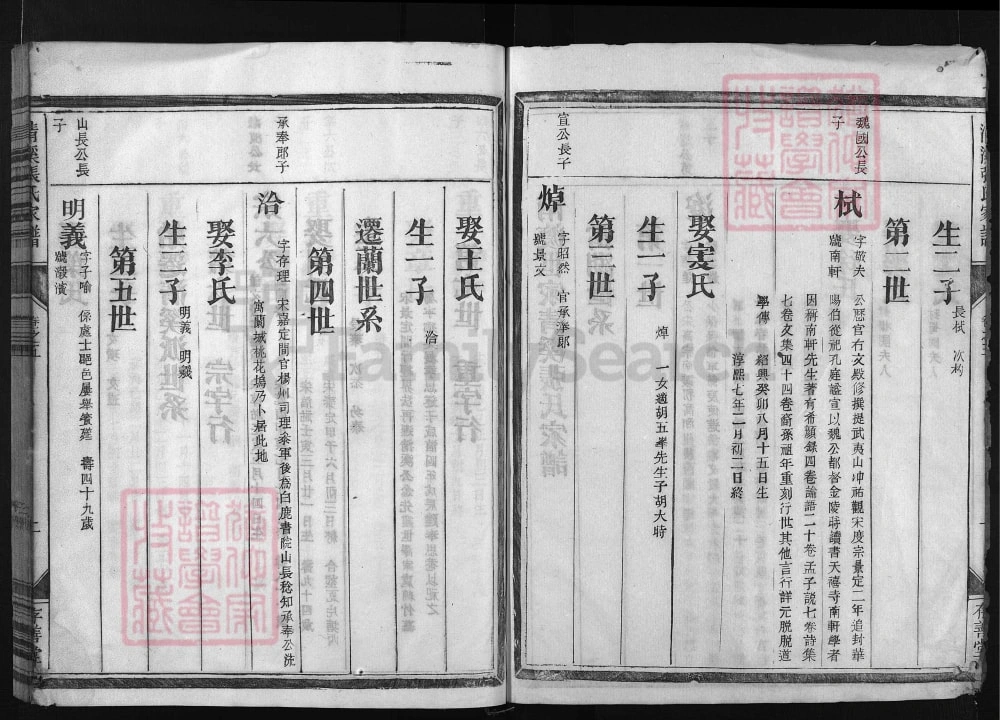 生二子
長栻 次杓
第二世
魏國公長
子
栻
字敬夫
號南軒
公歷官右文殿修撰提武夷山冲祐觀宋度宗景定二年追封華
陽伯從祀孔庭謚宣以魏公都督金陵時讀書天禧寺南軒學者
因稱南軒先生著有希顏錄四卷論語二十卷孟子說七卷詩集
七卷文集四十四卷裔孫祖年重刻行世其他言行詳元脫脫道
學傳
紹興癸卯八月十五日生
淳熙七年二月初二日終
娶宇文氏
生一子
焯
一女適胡五峯先生子胡大時
第三世
宣公長子
焯
字昭然 官承奉郎
號景文
娶王氏
生一子
洽
遷蘭世系
第四世
承奉郎子
洽
字存理 宋嘉定間官楊州司理叅軍後為白鹿書院山長稔知承奉公汼
寓蘭城桃花塢乃卜居此地
娶李氏
生二子
明義 明
第五世
山長公長
子
明義
字子喻
號濲濱
係處士郡邑屢舉 壽四十九歲
清溪張氏家譜
卷之五
存善堂
清溪張氏家譜
存善堂
FamilySearch